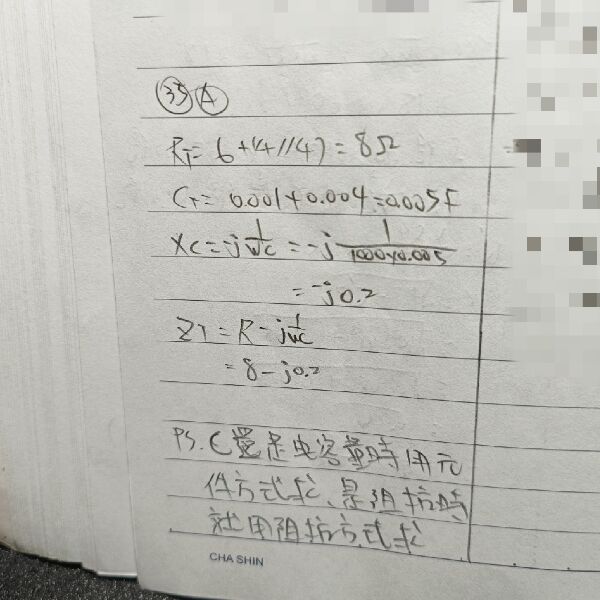 35 A
RT= 6+(4//4)=8Ω
CT= 0.001+0.004=0.005F
XC=-j 1/wC = -j 1/1000×0.005
=-j0.2
ZT=R-j 1/wC
=8-j0.2
PS.C還是电容量時用元
件方式求、是阻抗時
就用阻抗方式求
CHA SHIN